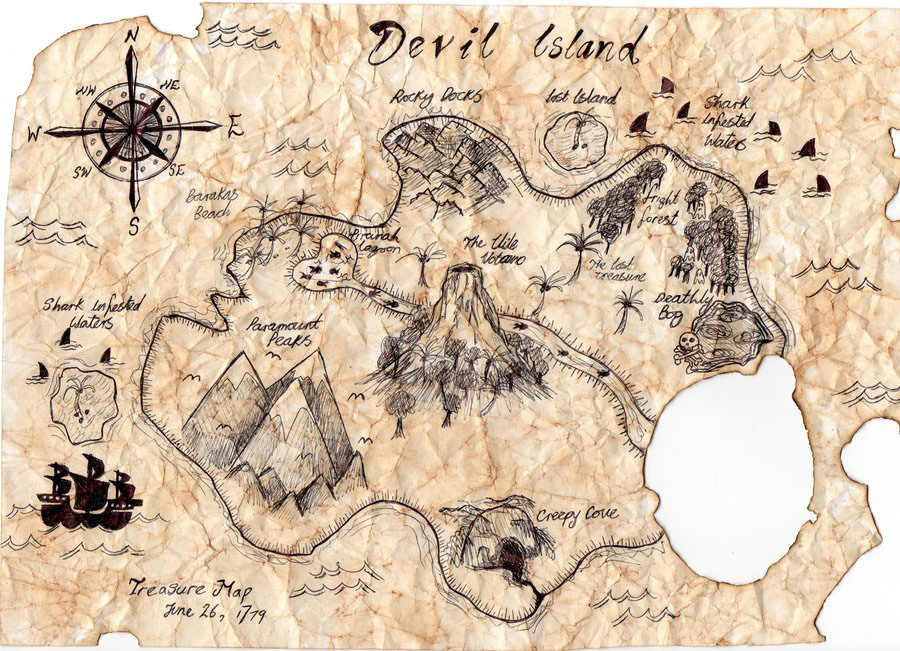 Devil Island
N
NW
NE
W
E
SW
SE
S
Rocky Docks
Lost Island
Shark
Infested
Waters
Barakas
Beach
Piranah
Lagoon
The Vile
Volcano
Fright
Forest
The Lost
Treasure
Deathly
Bog
Shark Infested
Waters
Paramount
Peaks
Creepy Cove
Treasure Map
June 26, 1779